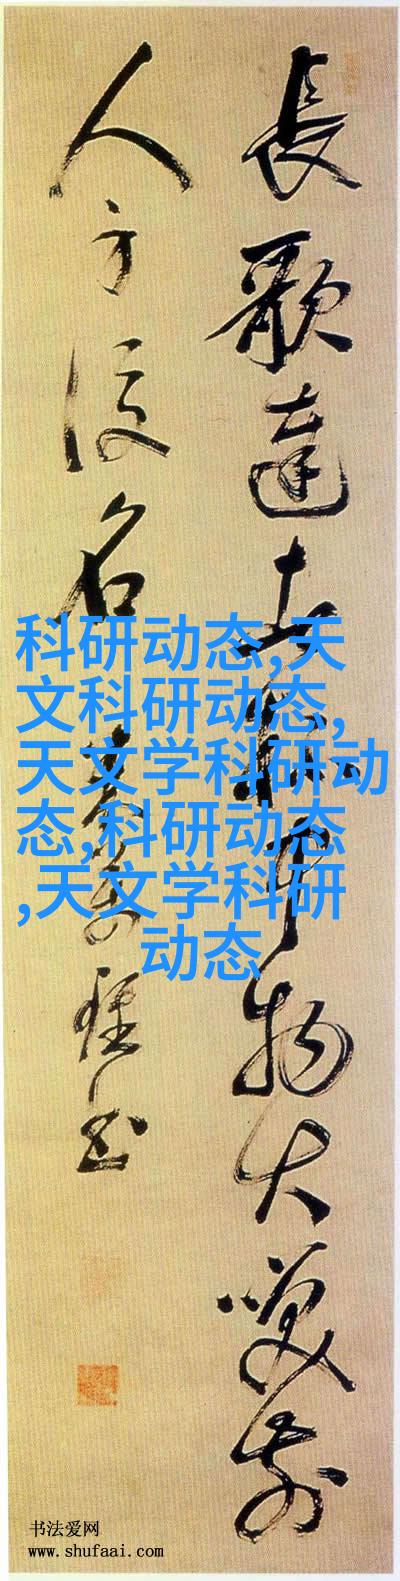 長歌達者杯中物大笑前
人身後名
科研动态,天
文科研动态,
天文学科研动
态,科研动态
,天文学科研
动态
书法爱网
www.shufaai.com